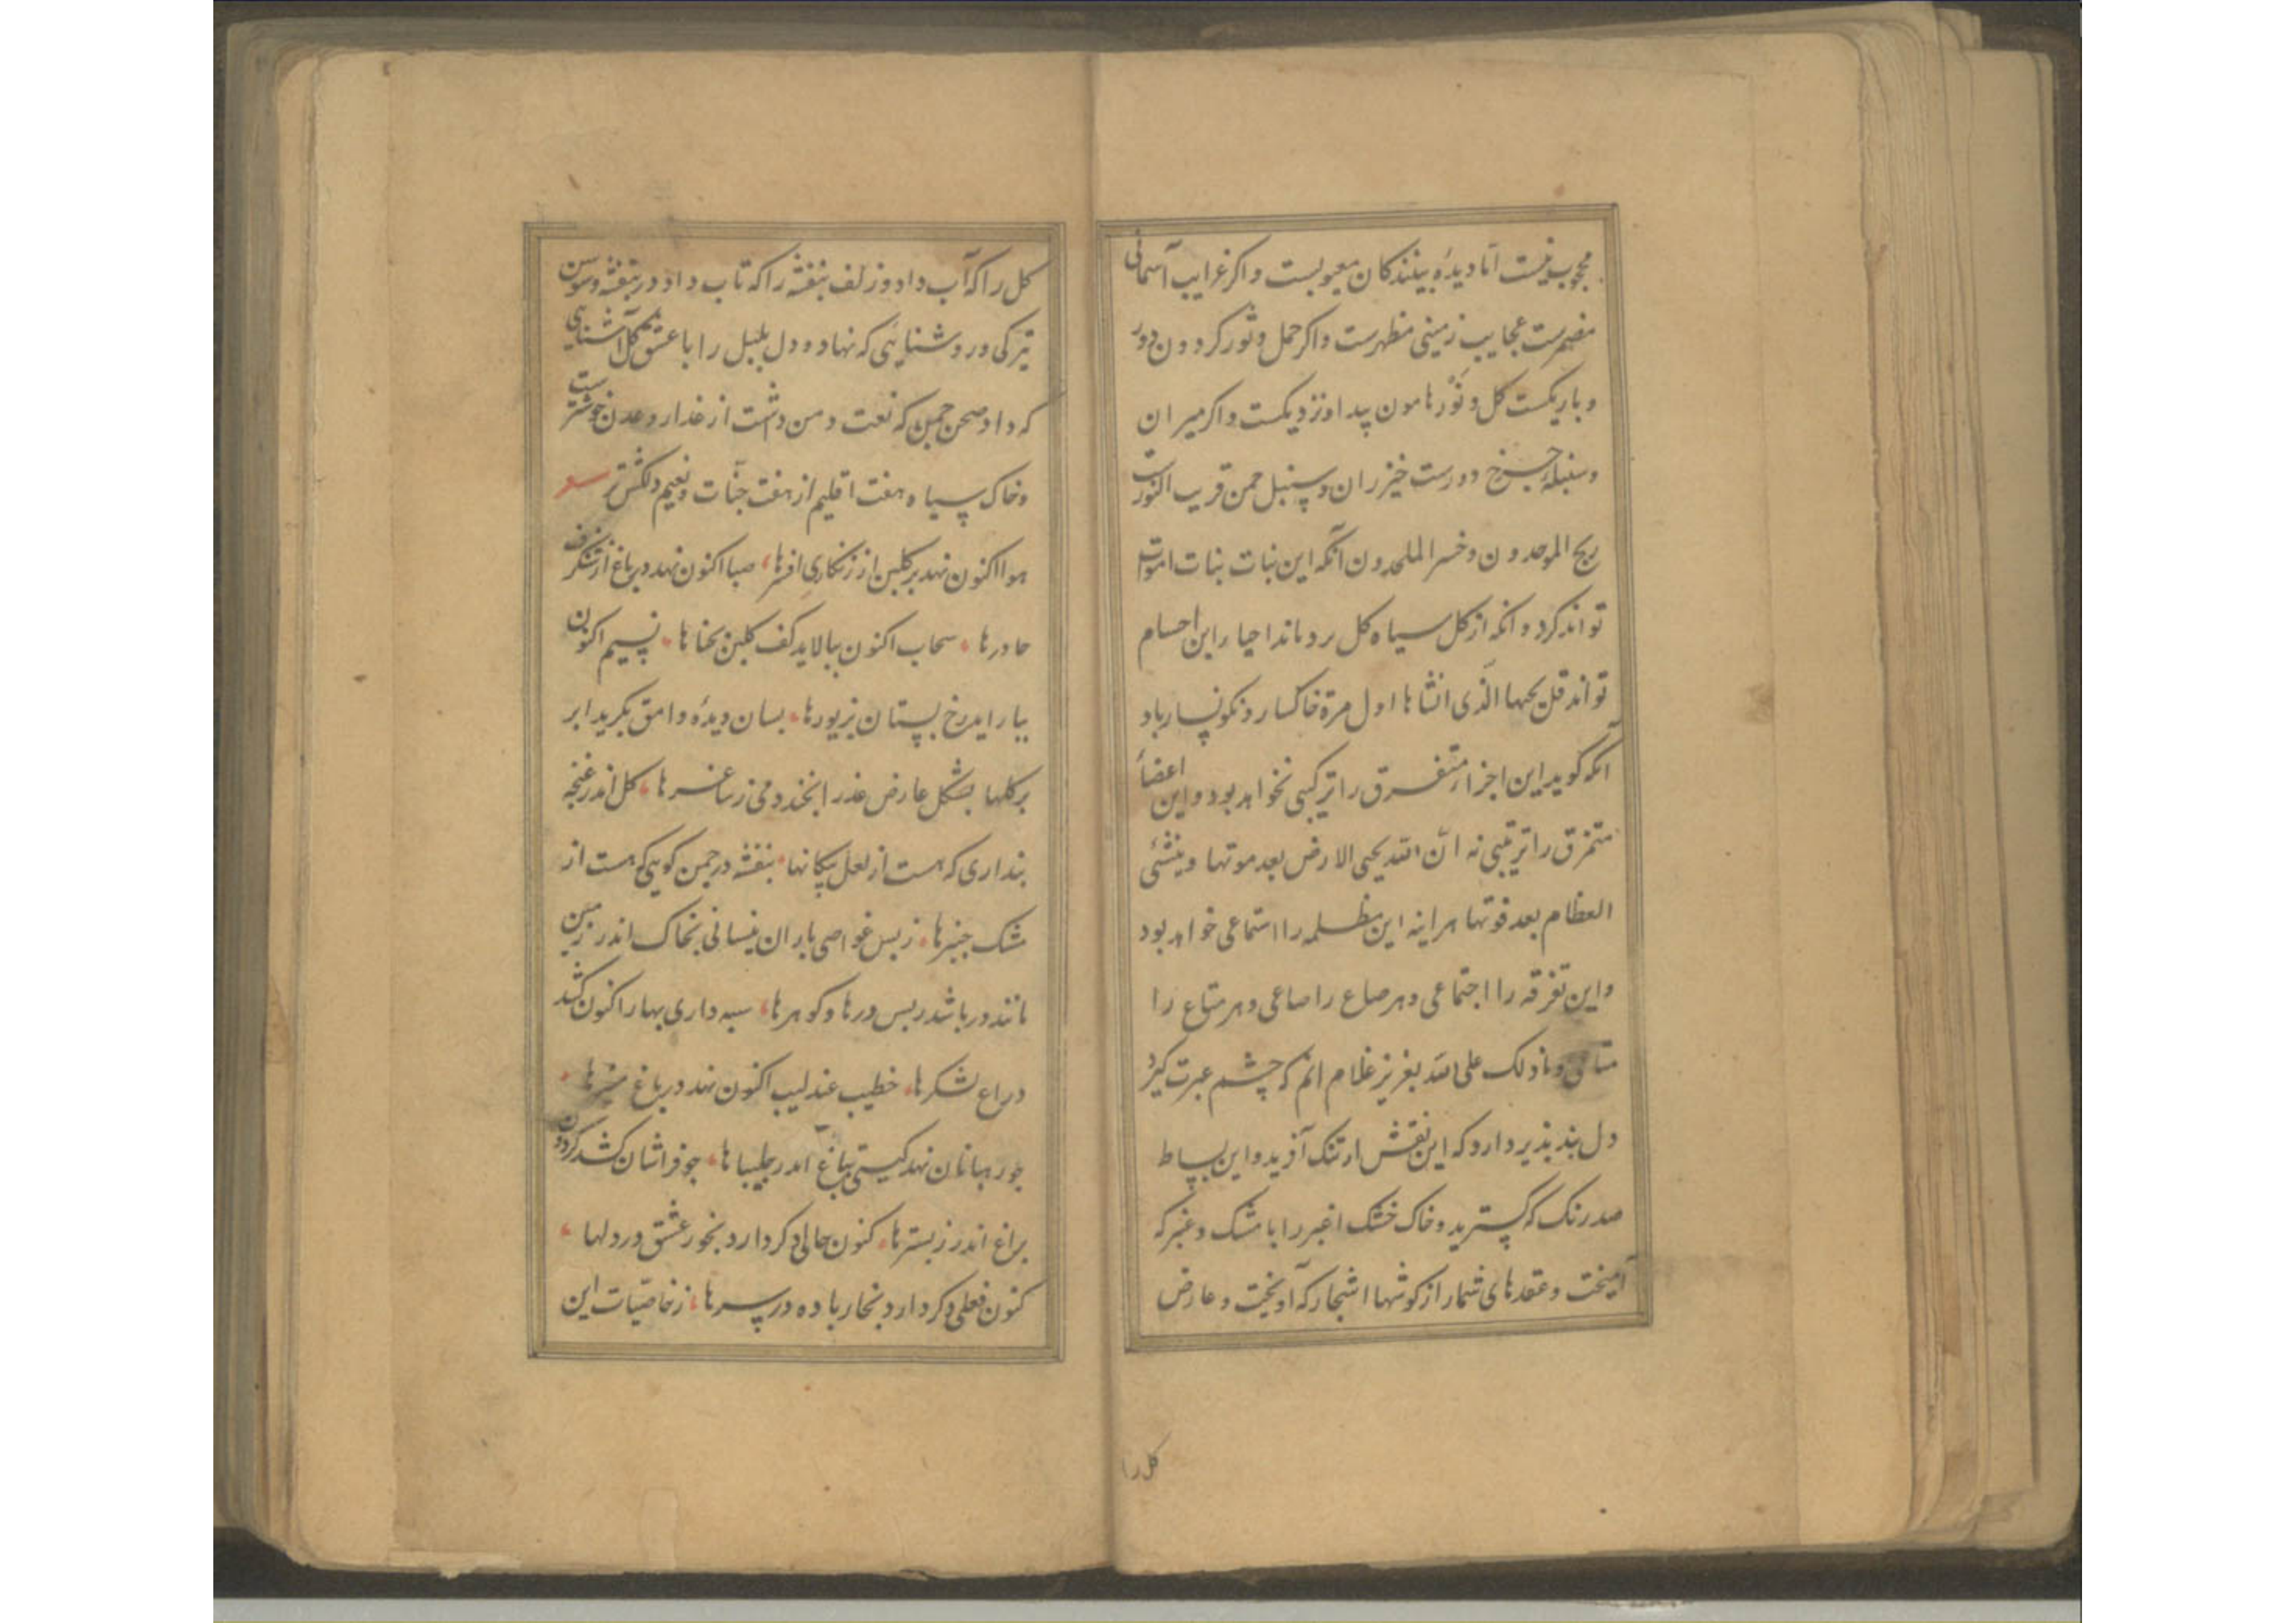 محجوب نیست اما دیده بینندگان معیوبست واکر غرایب آسمانی
مضمرست عجایب زمینی مظهرست واکر حمل وثور کردون دور
وباریکست کل ونَوْر هامون پیدا ونزدیکست واکر میزان
وسنبله چرخ دورست خیزران وسنبل چمن قریب النورست
ربح الموحدون وخسر الملحدون آنکه این نبات بنات اموات
تواند کرد وانکه از کل سیاه کل بردماند احیاء این اجسام
تواند قل یحیها الذی انشاها اول مرة خاکسار ونکونسار باد
آنکه کوید این اجزاء متفرق را ترکیبی نخواهد بود واین اعضاء
متمزق را ترتیبی نه ان الله یحیی الارض بعد موتها وینشئ
العظام بعد فوتها هراینه این مظلمه را استماعی خواهد بود
واین تفرقه را اجتماعی وهر صاع را صاعی وهر متاع را
متاعی وما ذلک علی الله بعزیز غلام انم که چشم عبرت کیرد
دل پند پذیر دارد که این نقش ارتنک آفرید واین بساط
صد رنک که کسترید وخاک خشک اغبر را با مشک وعنبر که
آمیخت وعقدهای شمار از کوشها اشجار که آویخت وعارض
کل را
کل را که آب داد وزلف بنفشه را که تاب داد در بنفشه وسوسن
تیرکی وروشنایی که نهاد ودل بلبل را با عشق کل آشنایی
که داد صحن چمن که نعت ومن دشت از غدار وعدن خوشترست
وخاک سیاه هفت اقلیم از هفت جنّات ونعیم دلکش تر شعر
هوا اکنون نهد بر کلبن از زنکاری افسرها، صبا اکنون نهد در باغ از شنکرف
چادرها، سحاب اکنون بیالاید کف کلبن بحناها، نسیم اکنون
بیاراید رخ بستان بزیورها، بسان دیده وامق بکرید ابر
بر کلها بشکل عارض عذرا بخندد می ز ساغرها، کل اندر غنچه
پنداری که هست از لعل پیکانها، بنفشه در چمن کویی که هست از
مشک چنبرها، ز بس غواصی باران نیسانی بخاک اندر زمین
مانند دریا شد ز بس درها وکوهرها، سپه داری بهار اکنون کشد
در راغ لشکرها، خطیب عندلیب اکنون نهد در باغ منبرها،
چو رهبانان نهد کیتی بباغ اندر چلیپاها، چو فراشان کشد کردون
براغ اندر ز بسترها، کنون حالی دکر دارد بخور عشق در دلها،
کنون فعلی دکر دارد بخار باده در سرها، ز خاصیات این